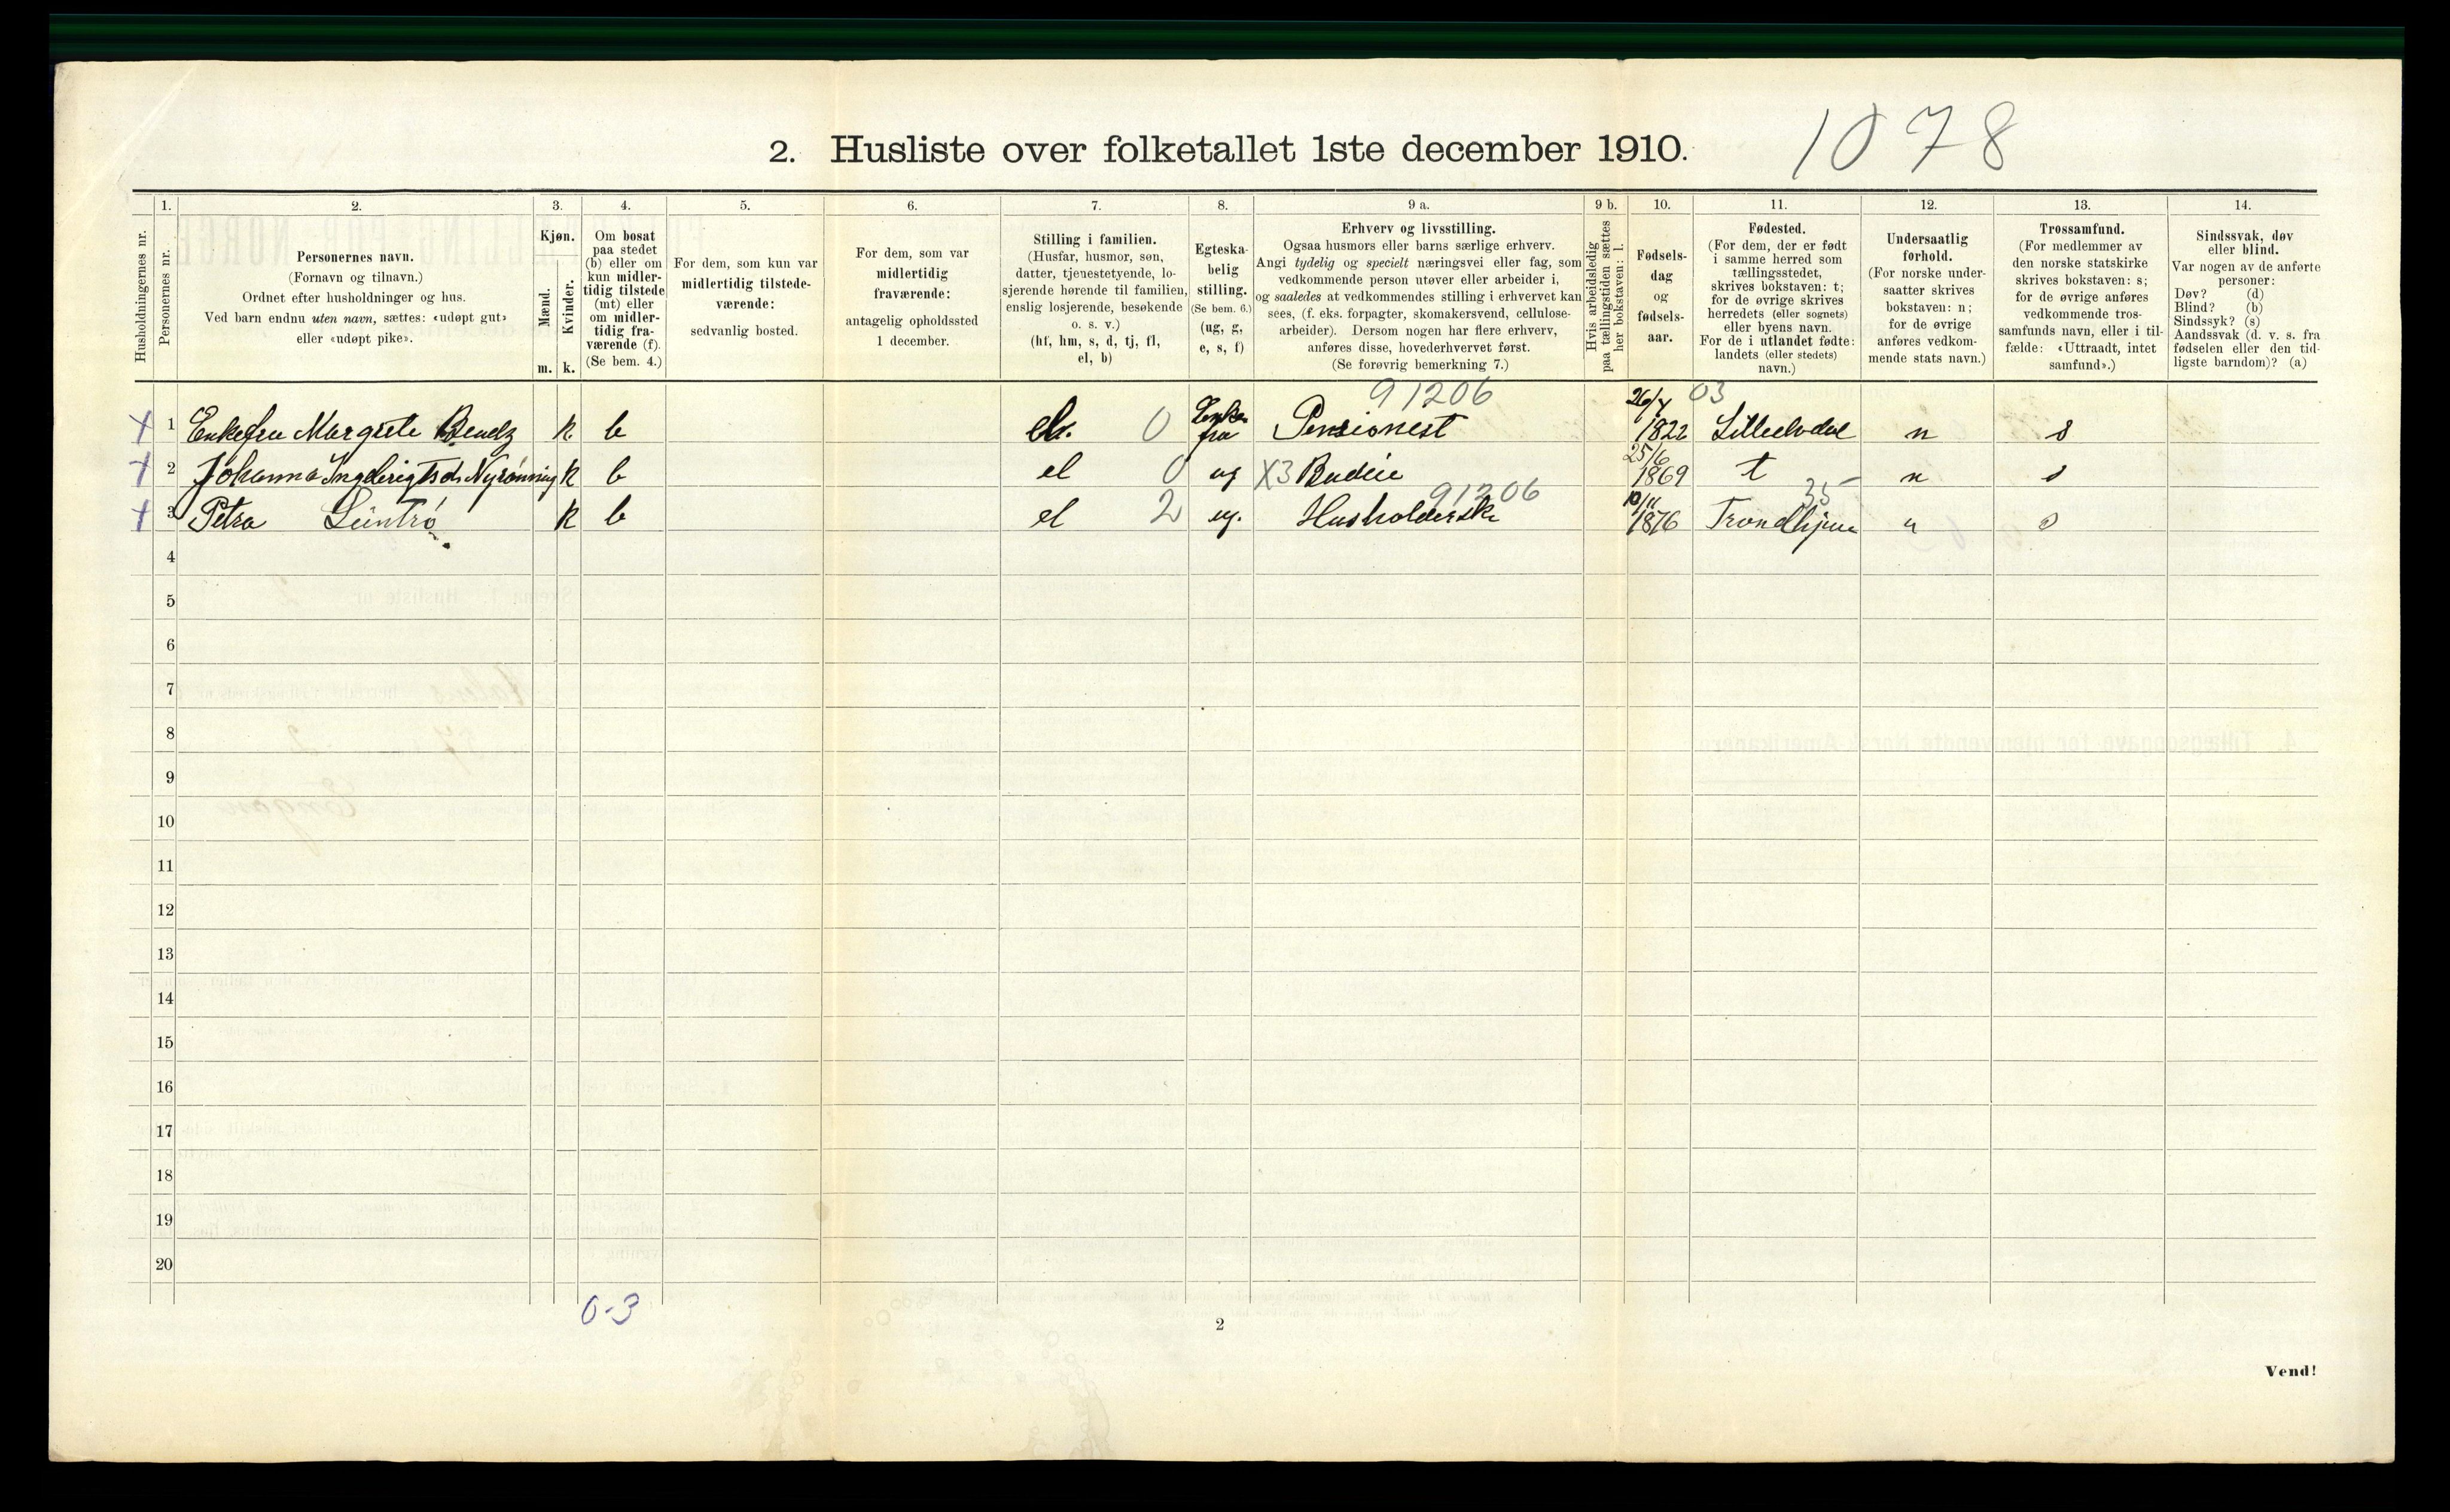 1078
2. Husliste over folketallet 1ste december 1910.
1. 2. 3. 4. 5. 6. 7. 8. 9 a. 9 b. 10. 11. 12. 13. 14.
Husholdningernes nr.
Personernes nr.
Personernes navn.
(Fornavn og tilnavn.)
Ordnet efter husholdninger og hus.
Ved barn endnu uten navn, sættes: «udøpt gut»
eller «udøpt pike».
Kjøn.
Mænd.
Kvinder.
m. k.
Om bosat
paa stedet
(b) eller om
kun midler-
tidig tilstede
(mt) eller
om midler-
tidig fra-
værende (f).
(Se bem. 4.)
For dem, som kun var
midlertidig tilstede-
værende:
sedvanlig bosted.
For dem, som var
midlertidig
fraværende:
antagelig opholdssted
1 december.
Stilling i familien.
(Husfar, husmor, søn,
datter, tjenestetyende, lo-
sjerende hørende til familien,
enslig losjerende, besøkende
o. s. v.)
(hf, hm, s, d, tj, fl,
el, b)
Egteska-
belig
stilling.
(Se bem. 6.)
(ug, g,
e, s, f)
Erhverv og livsstilling.
Ogsaa husmors eller barns særlige erhverv.
Angi tydelig og specielt næringsvei eller fag, som
vedkommende person utøver eller arbeider i,
og saaledes at vedkommendes stilling i erhvervet kan
sees, (f. eks. forpagter, skomakersvend, cellulose-
arbeider). Dersom nogen har flere erhverv,
anføres disse, hovederhvervet først.
(Se forøvrig bemerkning 7.)
Hvis arbeidsledig
paa tællingstiden sættes
her bokstaven: l.
Fødsels-
dag
og
fødsels-
aar.
Fødested.
(For dem, der er født
i samme herred som
tællingsstedet,
skrives bokstaven: t;
for de øvrige skrives
herredets (eller sognets)
eller byens navn.
For de i utlandet fødte:
landets (eller stedets)
navn.)
Undersaatlig
forhold.
(For norske under-
saatter skrives
bokstaven: n;
for de øvrige
anføres vedkom-
mende stats navn.)
Trossamfund.
(For medlemmer av
den norske statskirke
skrives bokstaven: s;
for de øvrige anføres
vedkommende tros-
samfunds navn, eller i til-
fælde: «Uttraadt, intet
samfund».)
Sindssvak, døv
eller blind.
Var nogen av de anførte
personer:
Døv? (d)
Blind? (b)
Sindssyk? (s)
Aandssvak (d. v. s. fra
fødselen eller den tid-
ligste barndom)? (a)
91206 26/4 03
1 Enkefru Margrete Bendz k b el. 0 Enke fru Pensionest 1822 Lilleelvdal n s
25/6
2 Johanna Ingebrigtsd. Nyrønning k b el 0 ug X3 Budeie 1869 t n s
91206 10/11 35
3 Petra k b el 2 ug. Husholderske 1876 Trondhjem n s
4
5
6
7
8
9
10
11
12
13
14
15
16
17
18
19
20
0-3
2
Vend!